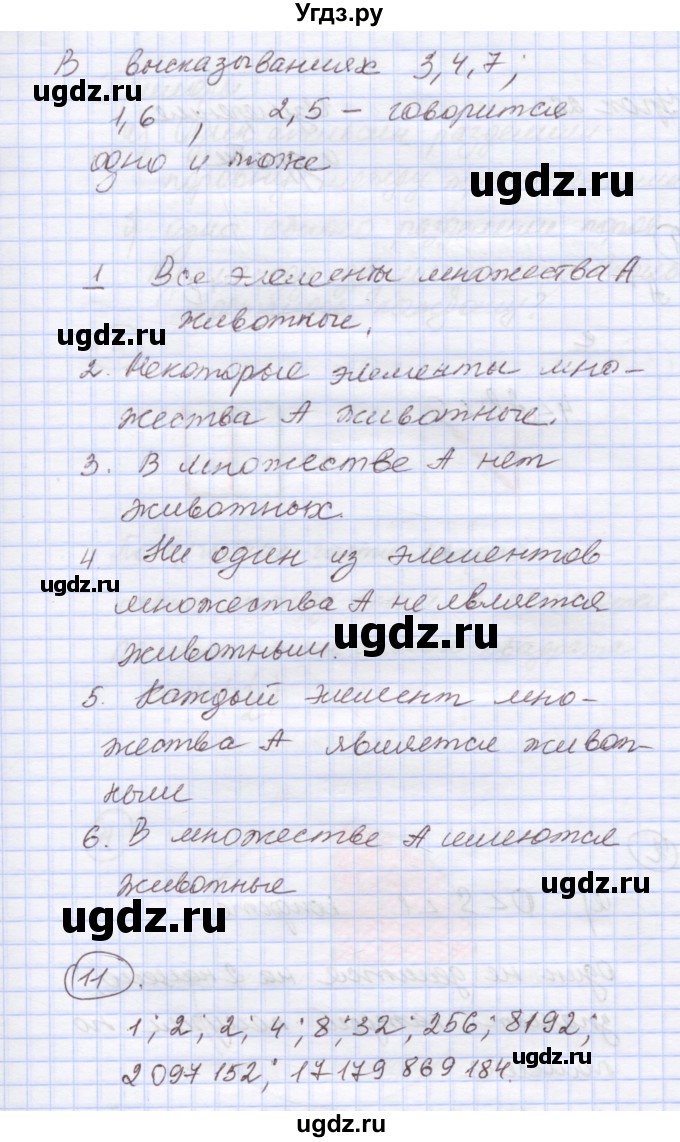 Угдз.ру
В высказываниях 3,4,7;
ugdz.ru
1,6 ; 2,5 — говорится
одно и тоже
ugdz.ru
1 Все элементы множества А
животные,
ugdz.ru
2. Некоторые элементы мно-
жества А животные.
3. В множестве А нет
животных.
4 Ни один из элементов
ugdz.ru
множества А не является
ugdz.ru
животным.
5. Каждый элемент мно-
жества А является живот-
ными
6. В множестве А имеются
животные
ugdz.ru
ugdz.ru
11.
1; 2; 2; 4; 8; 32; 256; 8192;
ugdz.ru
2 097 152; 17 179 869 184.
ugdz.ru
ugdz.ru